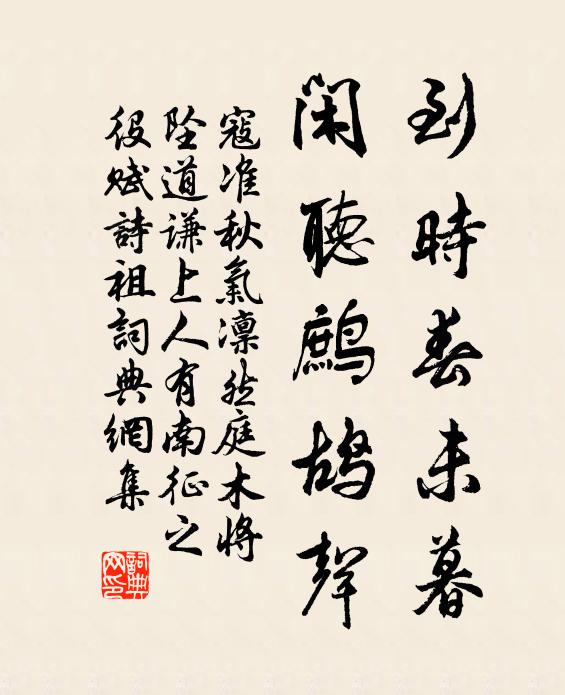 到時春未暮
閑聽鷓鴣聲
寇准秋氣凜然庭木將
墜道謙上人有南征之
役賦詩祖詞典網集
詞典網印